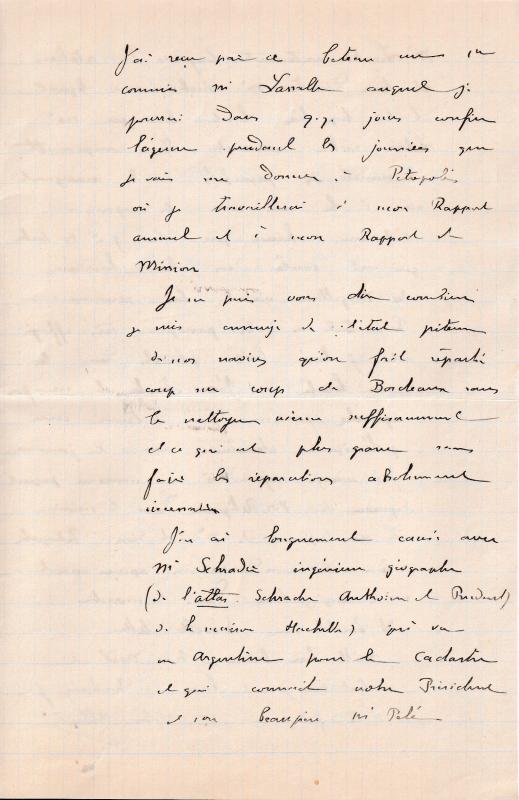 J'ai reçu par ce bateau un
commis Mr Lassalle auquel je
pourrai dans q.q. jours confier
l'agence pendant les journées que
je vais me donner à Petropolis
où je travaillerai à mon Rapport
annuel et à mon Rapport de
Mission
Je ne puis vous dire combien
je suis ennuyé de l'état piteux
de nos navires qu'on fait repartir
coup sur coup de Bordeaux sans
les nettoyer même suffisamment
et ce qui est plus grave sans
faire les réparations absolument
nécessaires
J'en ai longuement causé avec
Mr Schrader ingénieur géographe
(de l'atlas Schrader Anthoine et Prudent)
de la maison Hachette) qui va
en Argentine pour le Cadastre
et qui connait notre Président
et son beaupère Mr Pelé